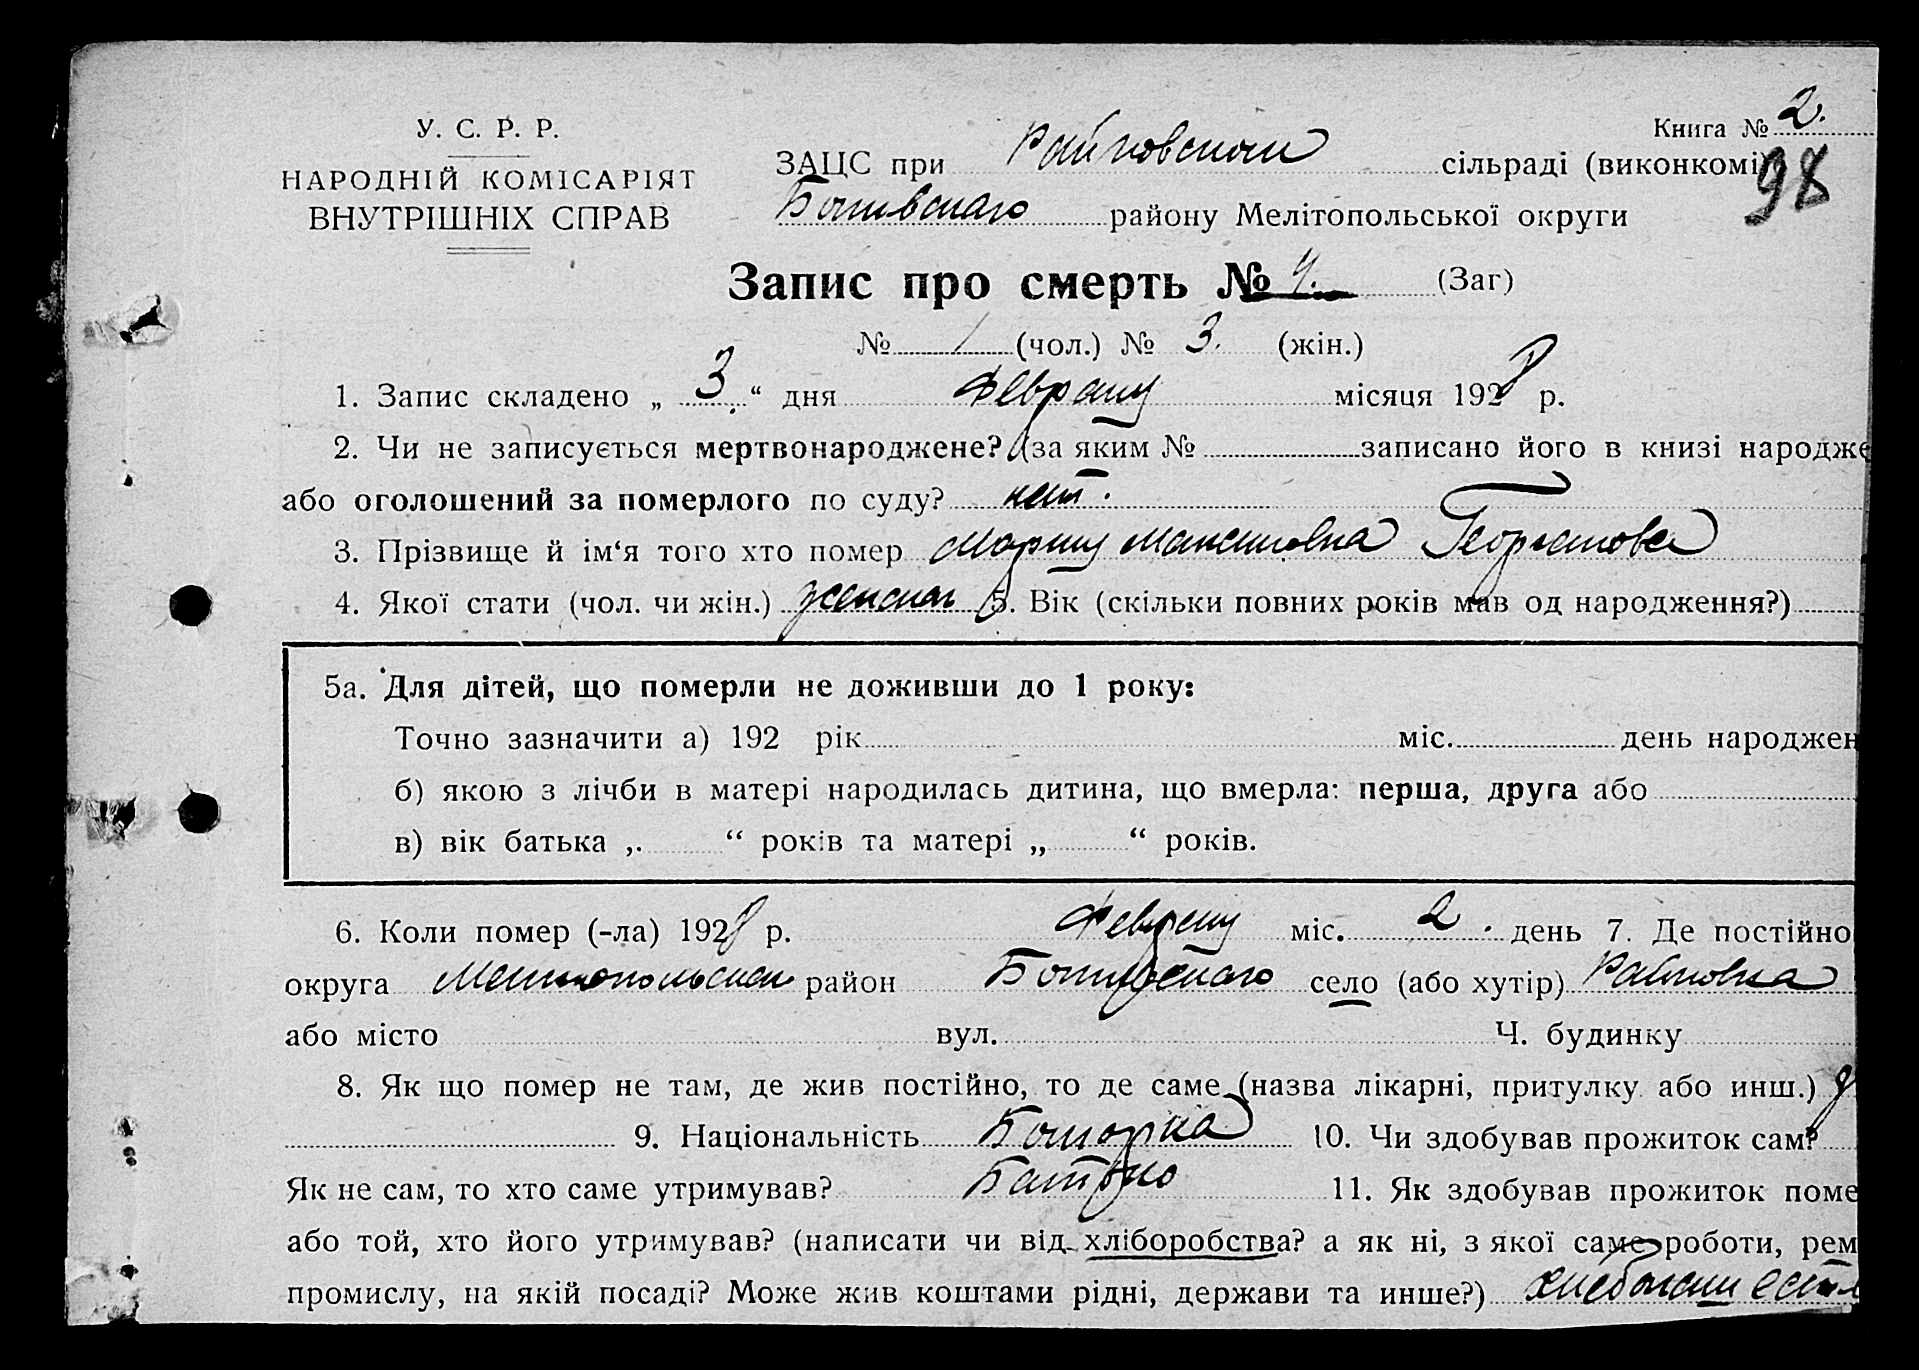 Книга № 2.
98
У. С. Р. Р.
НАРОДНІЙ КОМІСАРІЯТ
ВНУТРІШНІХ СПРАВ
ЗАЦС при Райновском сільраді (виконкомі)
району Мелітопольської округи
Запис про смерть № 4. (Заг)
№ / (чол.) № 3. (жін.)
1. Запис складено „ 3. “ дня Февраля місяця 1928 р.
2. Чи не записується мертвонароджене? (за яким № записано його в книзі народже
або оголошений за померлого по суду? нет.
3. Прізвище й ім‘я того хто помер Мария Максимовна
4. Якої стати (чол. чи жін.) женская 5. Вік (скільки повних років мав од народження?)
5а. Для дітей, що померли не доживши до 1 року:
Точно зазначити а) 192 рік міс. день народжен
б) якою з лічби в матері народилась дитина, що вмерла: перша, друга або
в) вік батька „ “ років та матері „ “ років.
6. Коли помер (-ла) 1928 р. Февраля міс. 2. день 7. Де постійно
округа Мелитопольская район село (або хутір) Райновка
або місто вул. Ч. будинку
8. Як що помер не там, де жив постійно, то де саме (назва лікарні, притулку або инш.)
9. Національність Болгарка 10. Чи здобував прожиток сам?
Як не сам, то хто саме утримував? Батько 11. Як здобував прожиток поме
або той, хто його утримував? (написати чи від хліборобства? а як ні, з якої саме роботи, рем
промислу, на якій посаді? Може жив коштами рідні, держави та инше?)